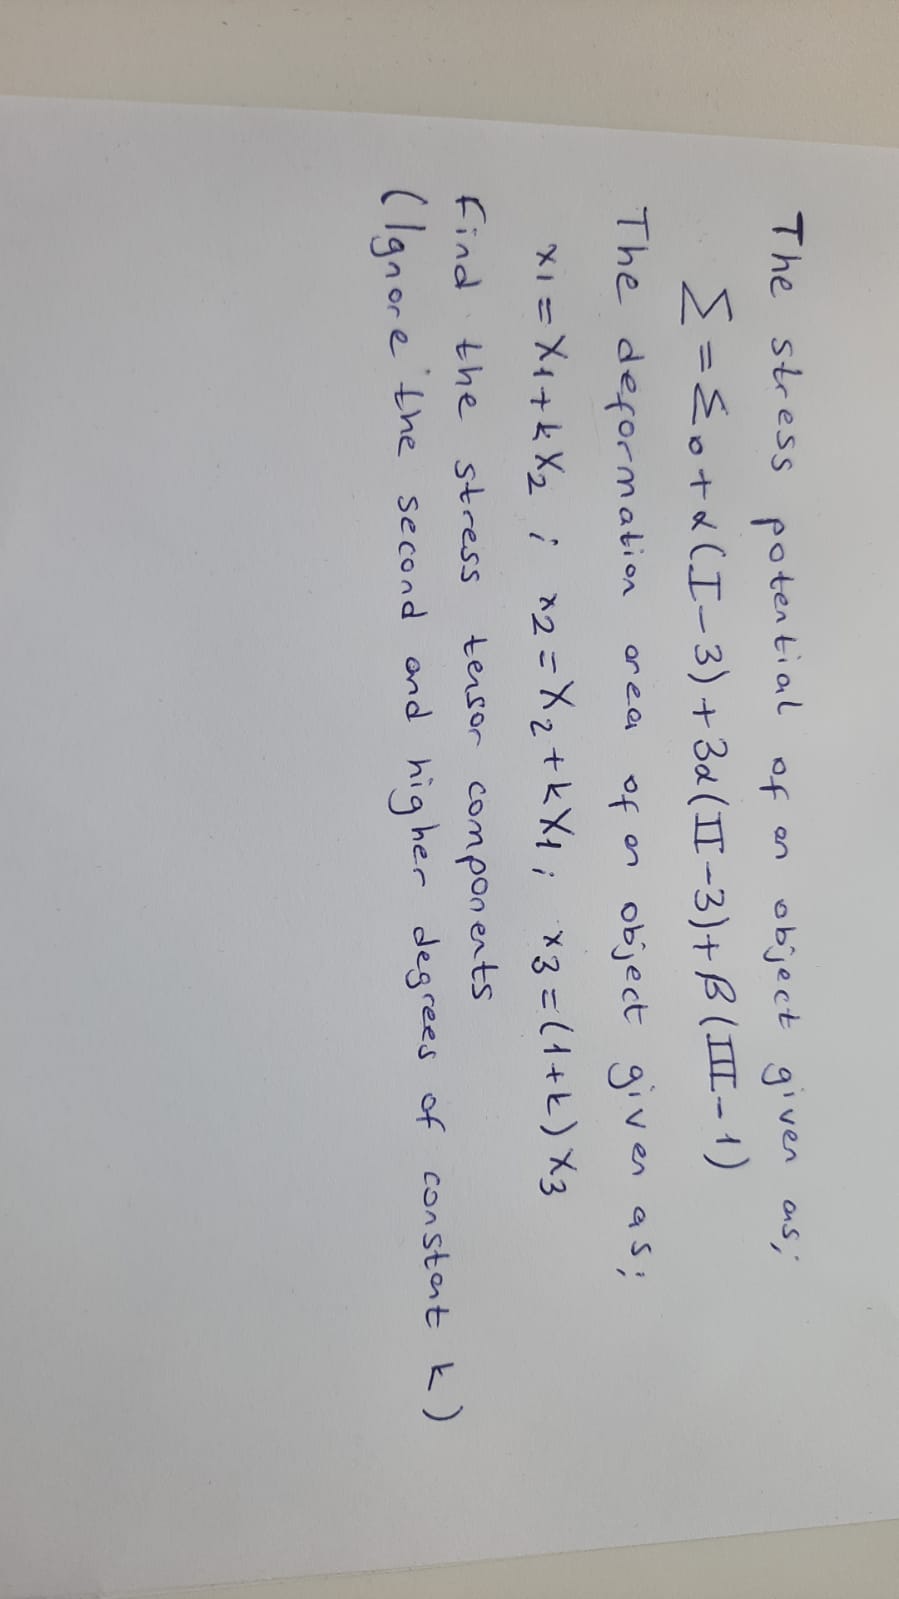 The stress potential of an object given as;
Σ = Σ₀ + α(I-3) + 3α(II-3) + β(III-1)
The deformation area of an object given as;
x₁ = X₁ + kX₂ ; x₂ = X₂ + kX₁ ; x₃ = (1+k) X₃
Find the stress tensor components
(Ignore the second and higher degrees of constant k)